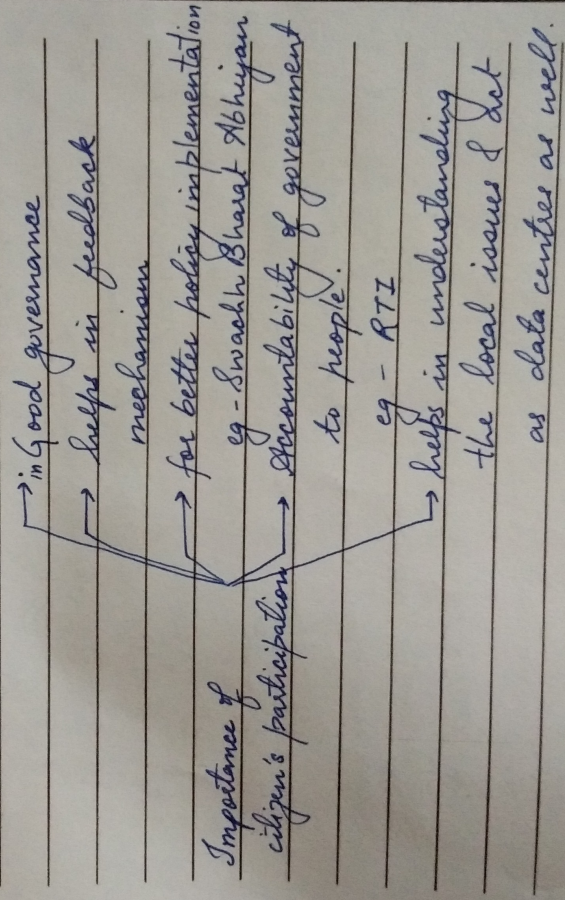 Importance of
citizen's participation
in Good governance
helps in feedback
mechanism
for better policy implementation
eg - Swachh Bharat Abhiyan
Accountability of government
to people.
eg - RTI
helps in understanding
the local issues & act
as data centres as well.